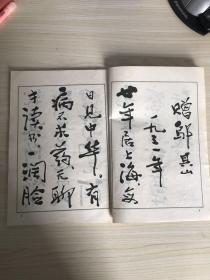 赠邬其山
一九三一年
廿年居上海每
日见中华有
病不求药无聊
才读书一阔脸